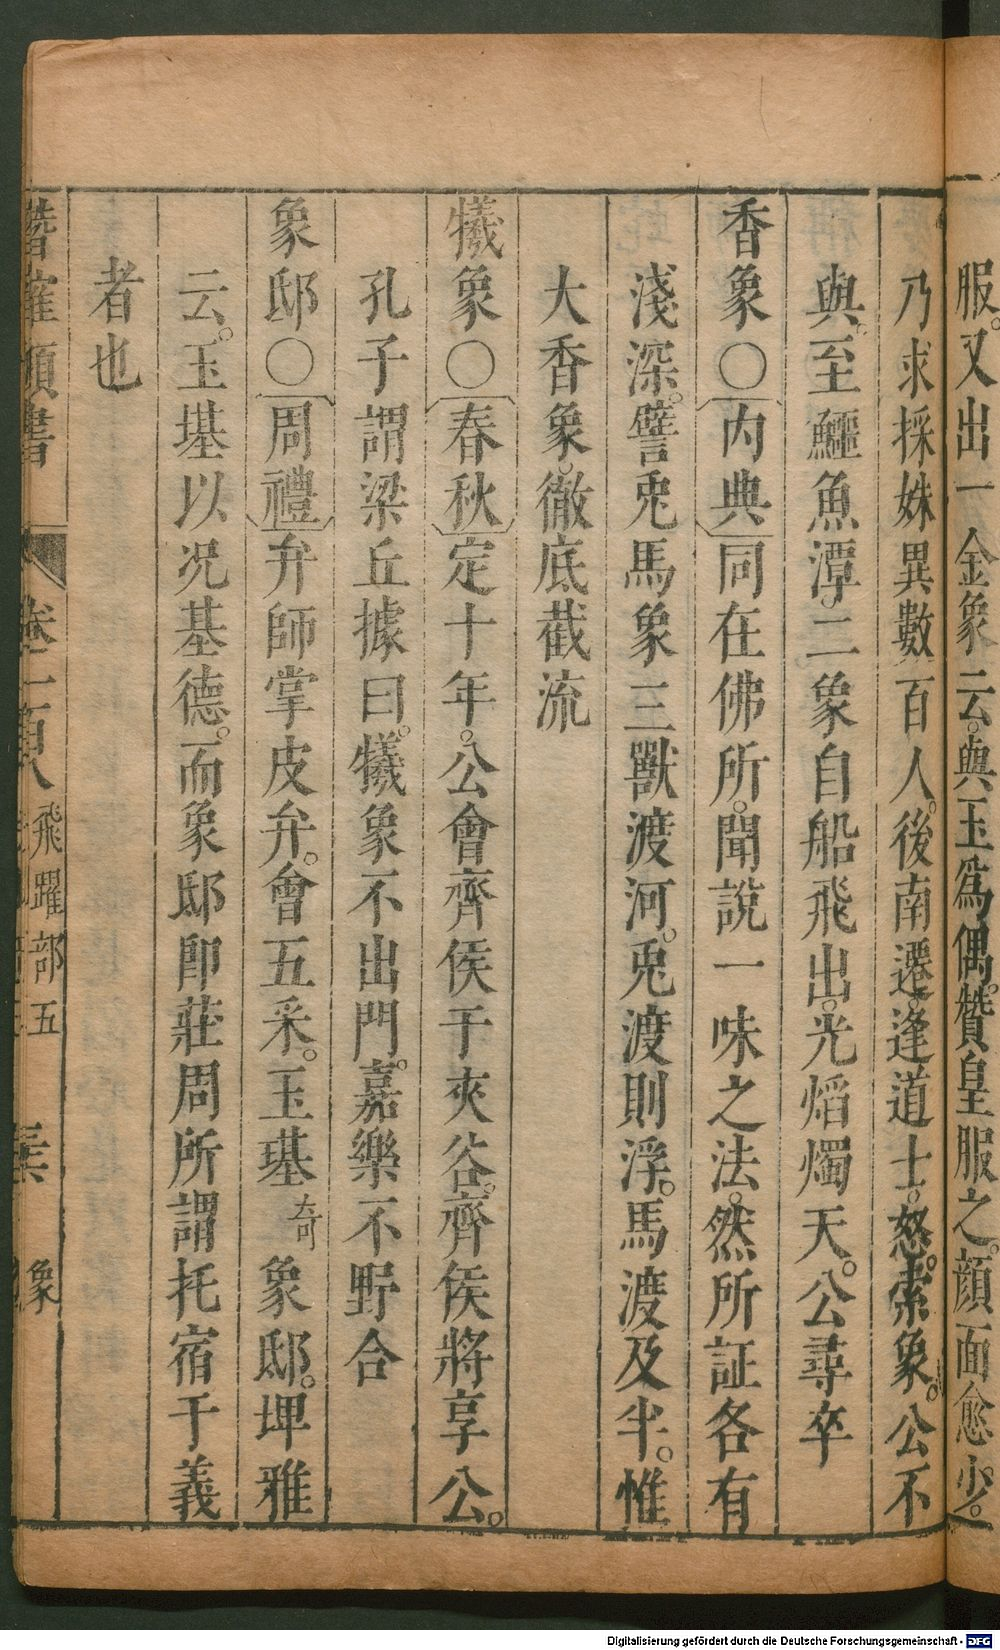 服。又出一金象云。與玉爲偶。贊皇服之。顔面愈少。
乃求採姝異數百人。後南遷。逢道士。怒。索象。公不
與。至鱷魚潭。二象自船飛出。光焰燭天。公尋卒
香象〇〔内典〕同在佛所。聞說一味之法。然所証各有
淺深。譬兎馬象三獸渡河。兎渡則浮。馬渡及半。惟
大香象。徹底截流
犧象〇〔春秋〕定十年。公會齊侯于夾谷。齊侯將享公。
孔子謂梁丘據曰。犧象不出門。嘉樂不野合
象邸〇〔周禮〕弁師掌皮弁。會五采。玉璂奇象邸。埤雅
云。玉璂以况基德。而象邸卽莊周所謂托宿于義
者也
潛確類書
卷一百八
飛躍部五
象
Digitalisierung gefördert durch die Deutsche Forschungsgemeinschaft - DFG